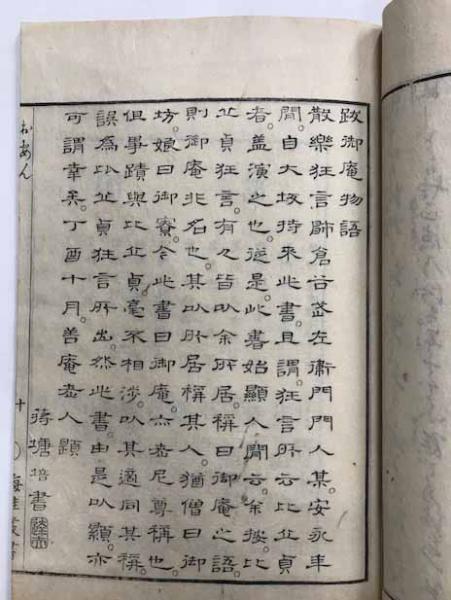 跋御庵物語
散樂狂言師倉谷甚左衞門門人某。安永年
間。自大坂持來此書。且謂。狂言所云比丘貞
者。盖演之也。從是。此書始顯人間云。余按。比
丘貞狂言。有人皆以余所居。稱曰御庵之語。
則御庵非名也。其以所居稱其人。猶僧曰御
坊。娘曰御寮。今此書曰御庵。亦老尼尊稱也。
但事蹟與比丘貞毫不相渉。以其適同其稱。
誤為比丘貞狂言所出。然此書。由是以顯。亦
可謂幸矣。丁酉十月。善庵老人題
塘培書
おあん
十